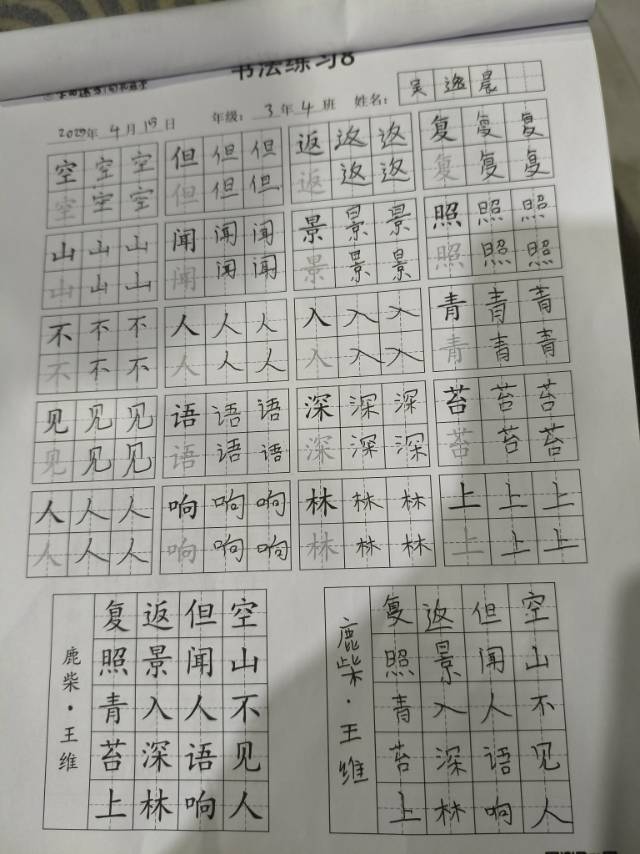 书法练习8
2020年 4月 19日 年级: 3年4班 姓名: 吴逸晨
空空空 但但但 返返返 复复复
空空空 但但但 返返返 复复复
山山山 闻闻闻 景景景 照照照
山山山 闻闻闻 景景景 照照照
不不不 人人人 入入入 青青青
不不不 人人人 入入入 青青青
见见见 语语语 深深深 苔苔苔
见见见 语语语 深深深 苔苔苔
人人人 响响响 林林林 上上上
人人人 响响响 林林林 上上上
空山不见人
但闻人语响
返景入深林
复照青苔上
鹿柴·王维
空山不见人
但闻人语响
返景入深林
复照青苔上
鹿柴·王维